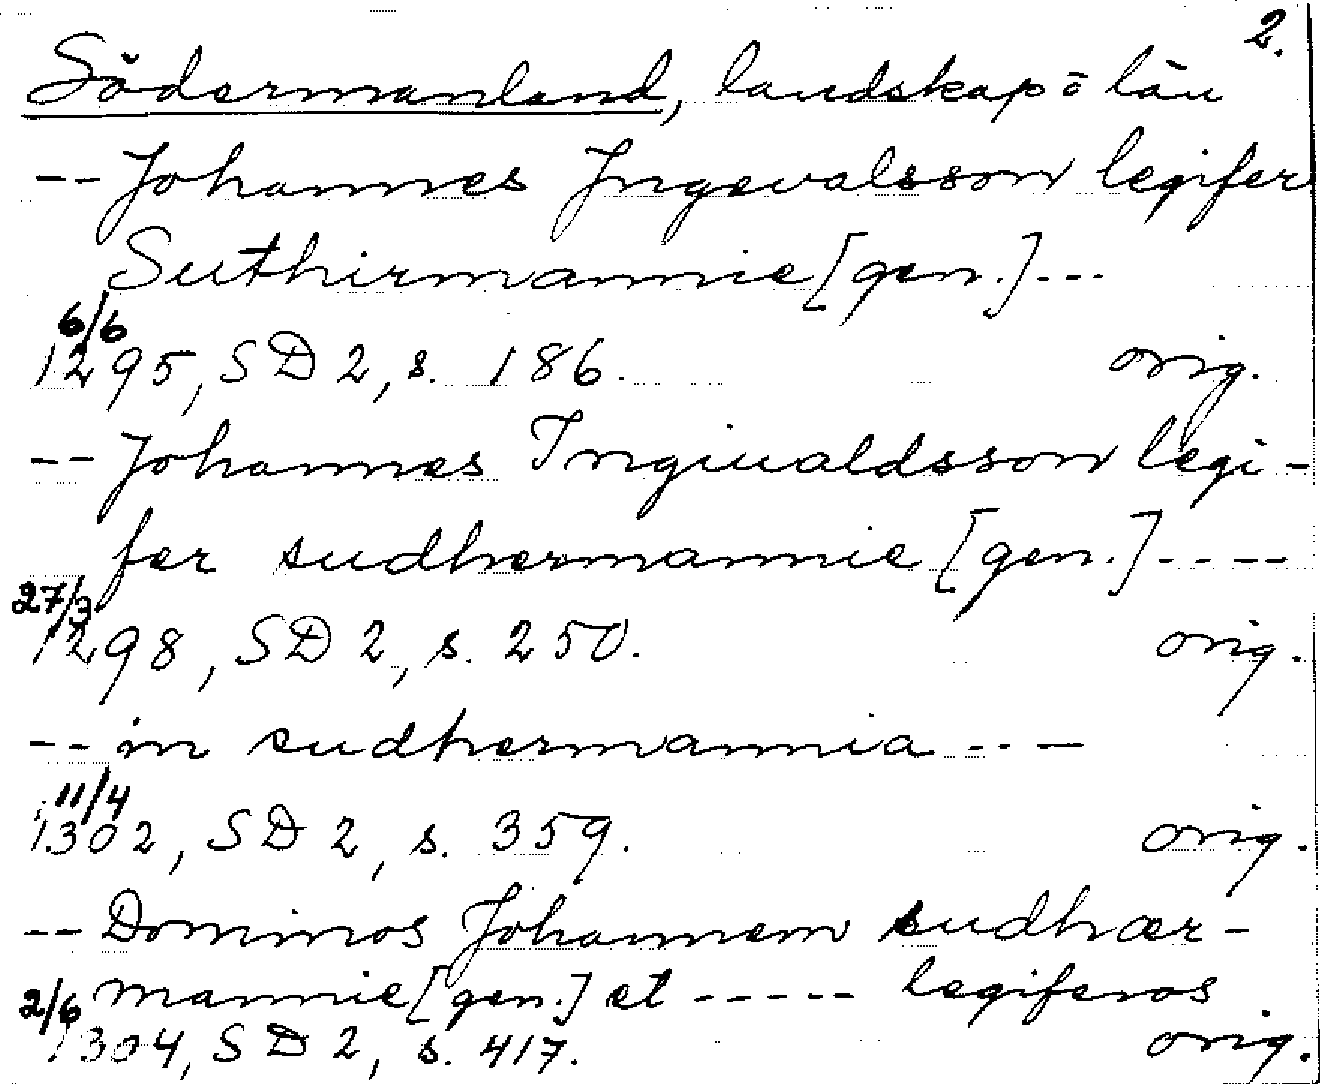 2.
Södermanland, landskap o län
-- Johannes Jngevalsson legifer
Suthirmannie [gen.] ---
6/6
1295, SD 2, s. 186. orig.
-- Johannes Ingiualdsson legi-
fer sudhermannie [gen.] ----
27/3
1298, SD 2, s. 250. orig.
-- in sudhermannia ---
11/4
1302, SD 2, s. 359. orig.
-- Dominos Johannem sudhær-
2/6 mannie [gen.] et ----- legiferos
1304, SD 2, s. 417. orig.